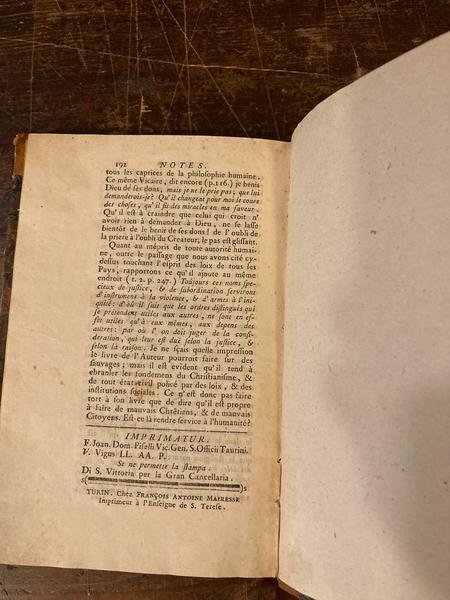 192 NOTES.
tous les caprices de la philosophie humaine.
Ce même Vicaire, dit encore (p.116.) je benis
Dieu de ses dons, mais je ne le prie pas; que lui
demanderois-je? Qu'il changeat pour moi le cours
des choses, qu'il fit des miracles en ma faveur.
Qu'il est à craindre que celui qui croit n'
avoir rien à demander à Dieu, ne se lasse
bientôt de le benir de ses dons! de l'oubli de
la priere à l'oubli du Createur, le pas est glissant.
Quant au mépris de toute autorité humai-
ne, outre le passage que nous avons cité cy-
dessus touchant l'esprit des loix de tous les
Pays, rapportons ce qu'il ajoute au même
endroit (t. 2. p. 247.) Toujours ces noms spe-
cieux de justice, & de subordination serviront
d'instrumens à la violence, & d'armes à l'ini-
quité: d'où il suit que les ordres distingués qui
se prétendent utiles aux autres, ne sont en ef-
fet utiles qu'à eux mêmes, aux depens des
autres: par où l'on doit juger de la consi-
deration, qui leur est due selon la justice, &
selon la raison. Je ne sçais quelle impression
le livre de l'Auteur pourroit faire sur des
sauvages; mais il est evident qu'il tend à
ebranler les fondemens du Christianisme, &
de tout état civil policé par des loix, & des
institutions sociales. Ce n'est donc pas faire
tort à son livre que de dire qu'il est propre
à faire de mauvais Chrêtiens, & de mauvais
Citoyens. Est-ce là rendre service à l'humanité?
IMPRIMATUR.
F. Joan. Dom. Piselli Vic. Gen. S. Officii Taurini.
V. Vigus LL. AA. P.
Se ne permette la stampa.
Di S. Vittoria per la Gran Cancellaria.
TURIN. Chez FRANÇOIS ANTOINE MAIRESSE
Imprimeur à l'Enseigne de S. Terese.